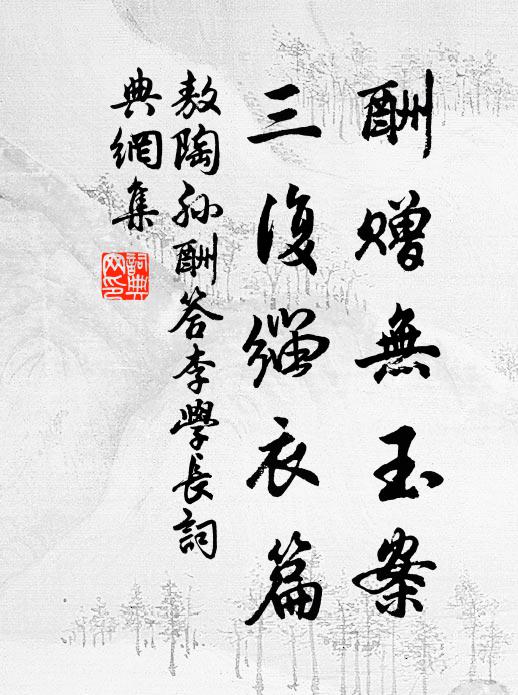 酬贈無玉案
三復緇衣篇
敖陶孫酬答李學長詞
典網集
詞典
网印